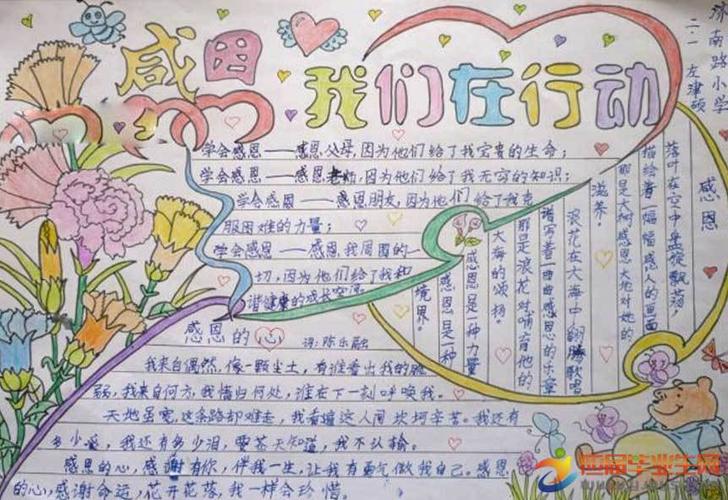 感恩
我们在行动
济南路小学
二·一 左津硕
学会感恩——感恩父母,因为他们给了我宝贵的生命;
学会感恩——感恩老师,因为他们给了我无穷的知识;
学会感恩——感恩朋友,因为他们给了我克
服困难的力量;
学会感恩——感恩我周围的一
切,因为他们给了我和
谐健康的成长空间
感恩
落叶在空中盘旋飘荡,
描绘着一幅幅感人的画面
那是大树感恩大地对她的
滋养。
浪花在大海中翻腾歌唱
谱写着一曲曲感恩的乐章
那是浪花对哺育他的
大海的颂扬。
感恩是一种力量
感恩是一种
境界。
感恩的心
词:陈乐融
我来自偶然,像一颗尘土,有谁看出我的脆
弱,我来自何方,我情归何处,谁在下一刻呼唤我。
天地虽宽,这条路却难走,我看遍这人间坎坷辛苦。我还有
多少爱,我还有多少泪,要苍天知道,我不认输。
感恩的心,感谢有你,伴我一生,让我有勇气做我自己。感恩
的心,感谢命运,花开花落,我一样会珍惜。
应届毕业生网